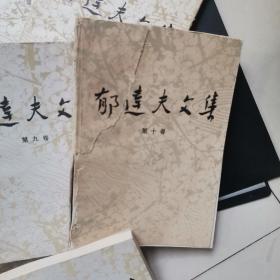 達夫文
第九卷
郁達夫文集
第十卷